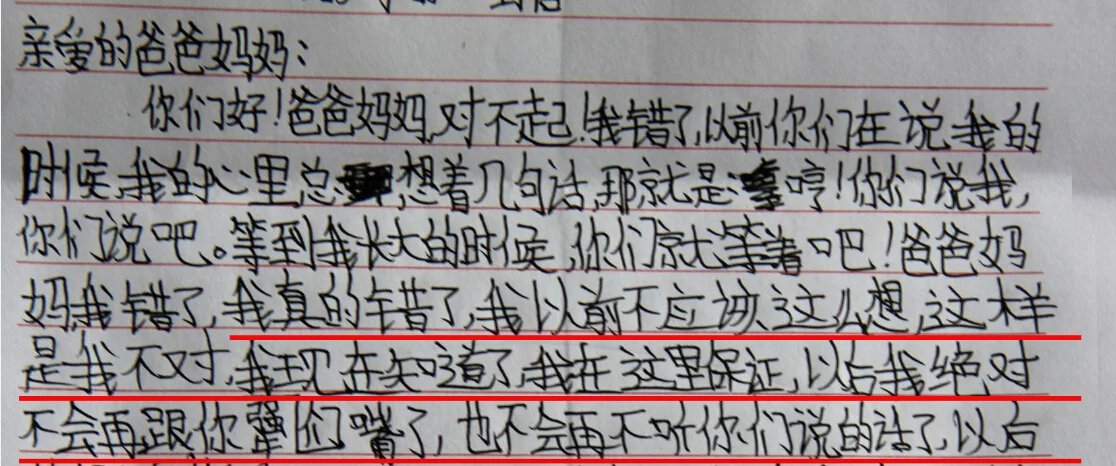 亲爱的爸爸妈妈:
你们好!爸爸妈妈,对不起!我错了,以前你们在说我的
时候,我的心里总想着几句话,那就是:哼!你们说我,
你们说吧。等到我长大的时候,你们就等着吧!爸爸妈
妈,我错了,我真的错了,我以前不应该这么想,这样
是我不对,我现在知道了,我在这里保证,以后我绝对
不会再跟你犟们嘴了,也不会再不听你们说的话了,以后